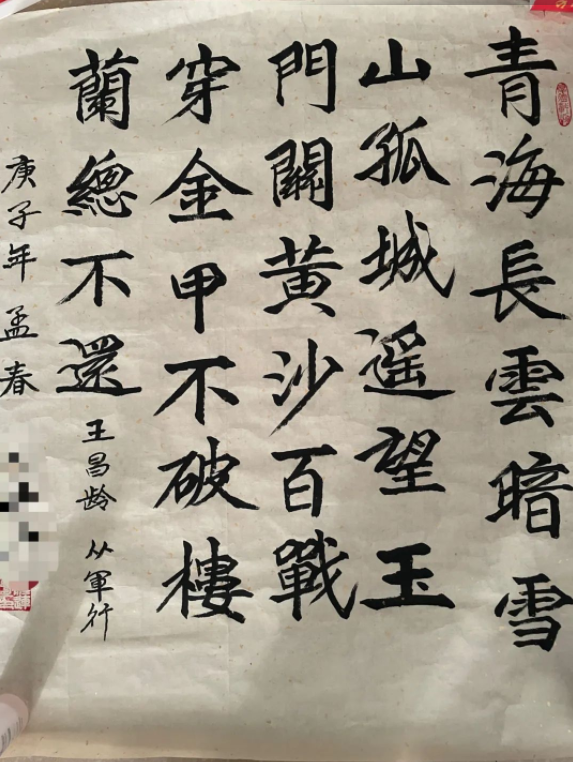 青海長雲暗雪
山孤城遥望玉
門關黄沙百戰
穿金甲不破樓
蘭總不還
王昌龄 从軍行
庚子年孟春